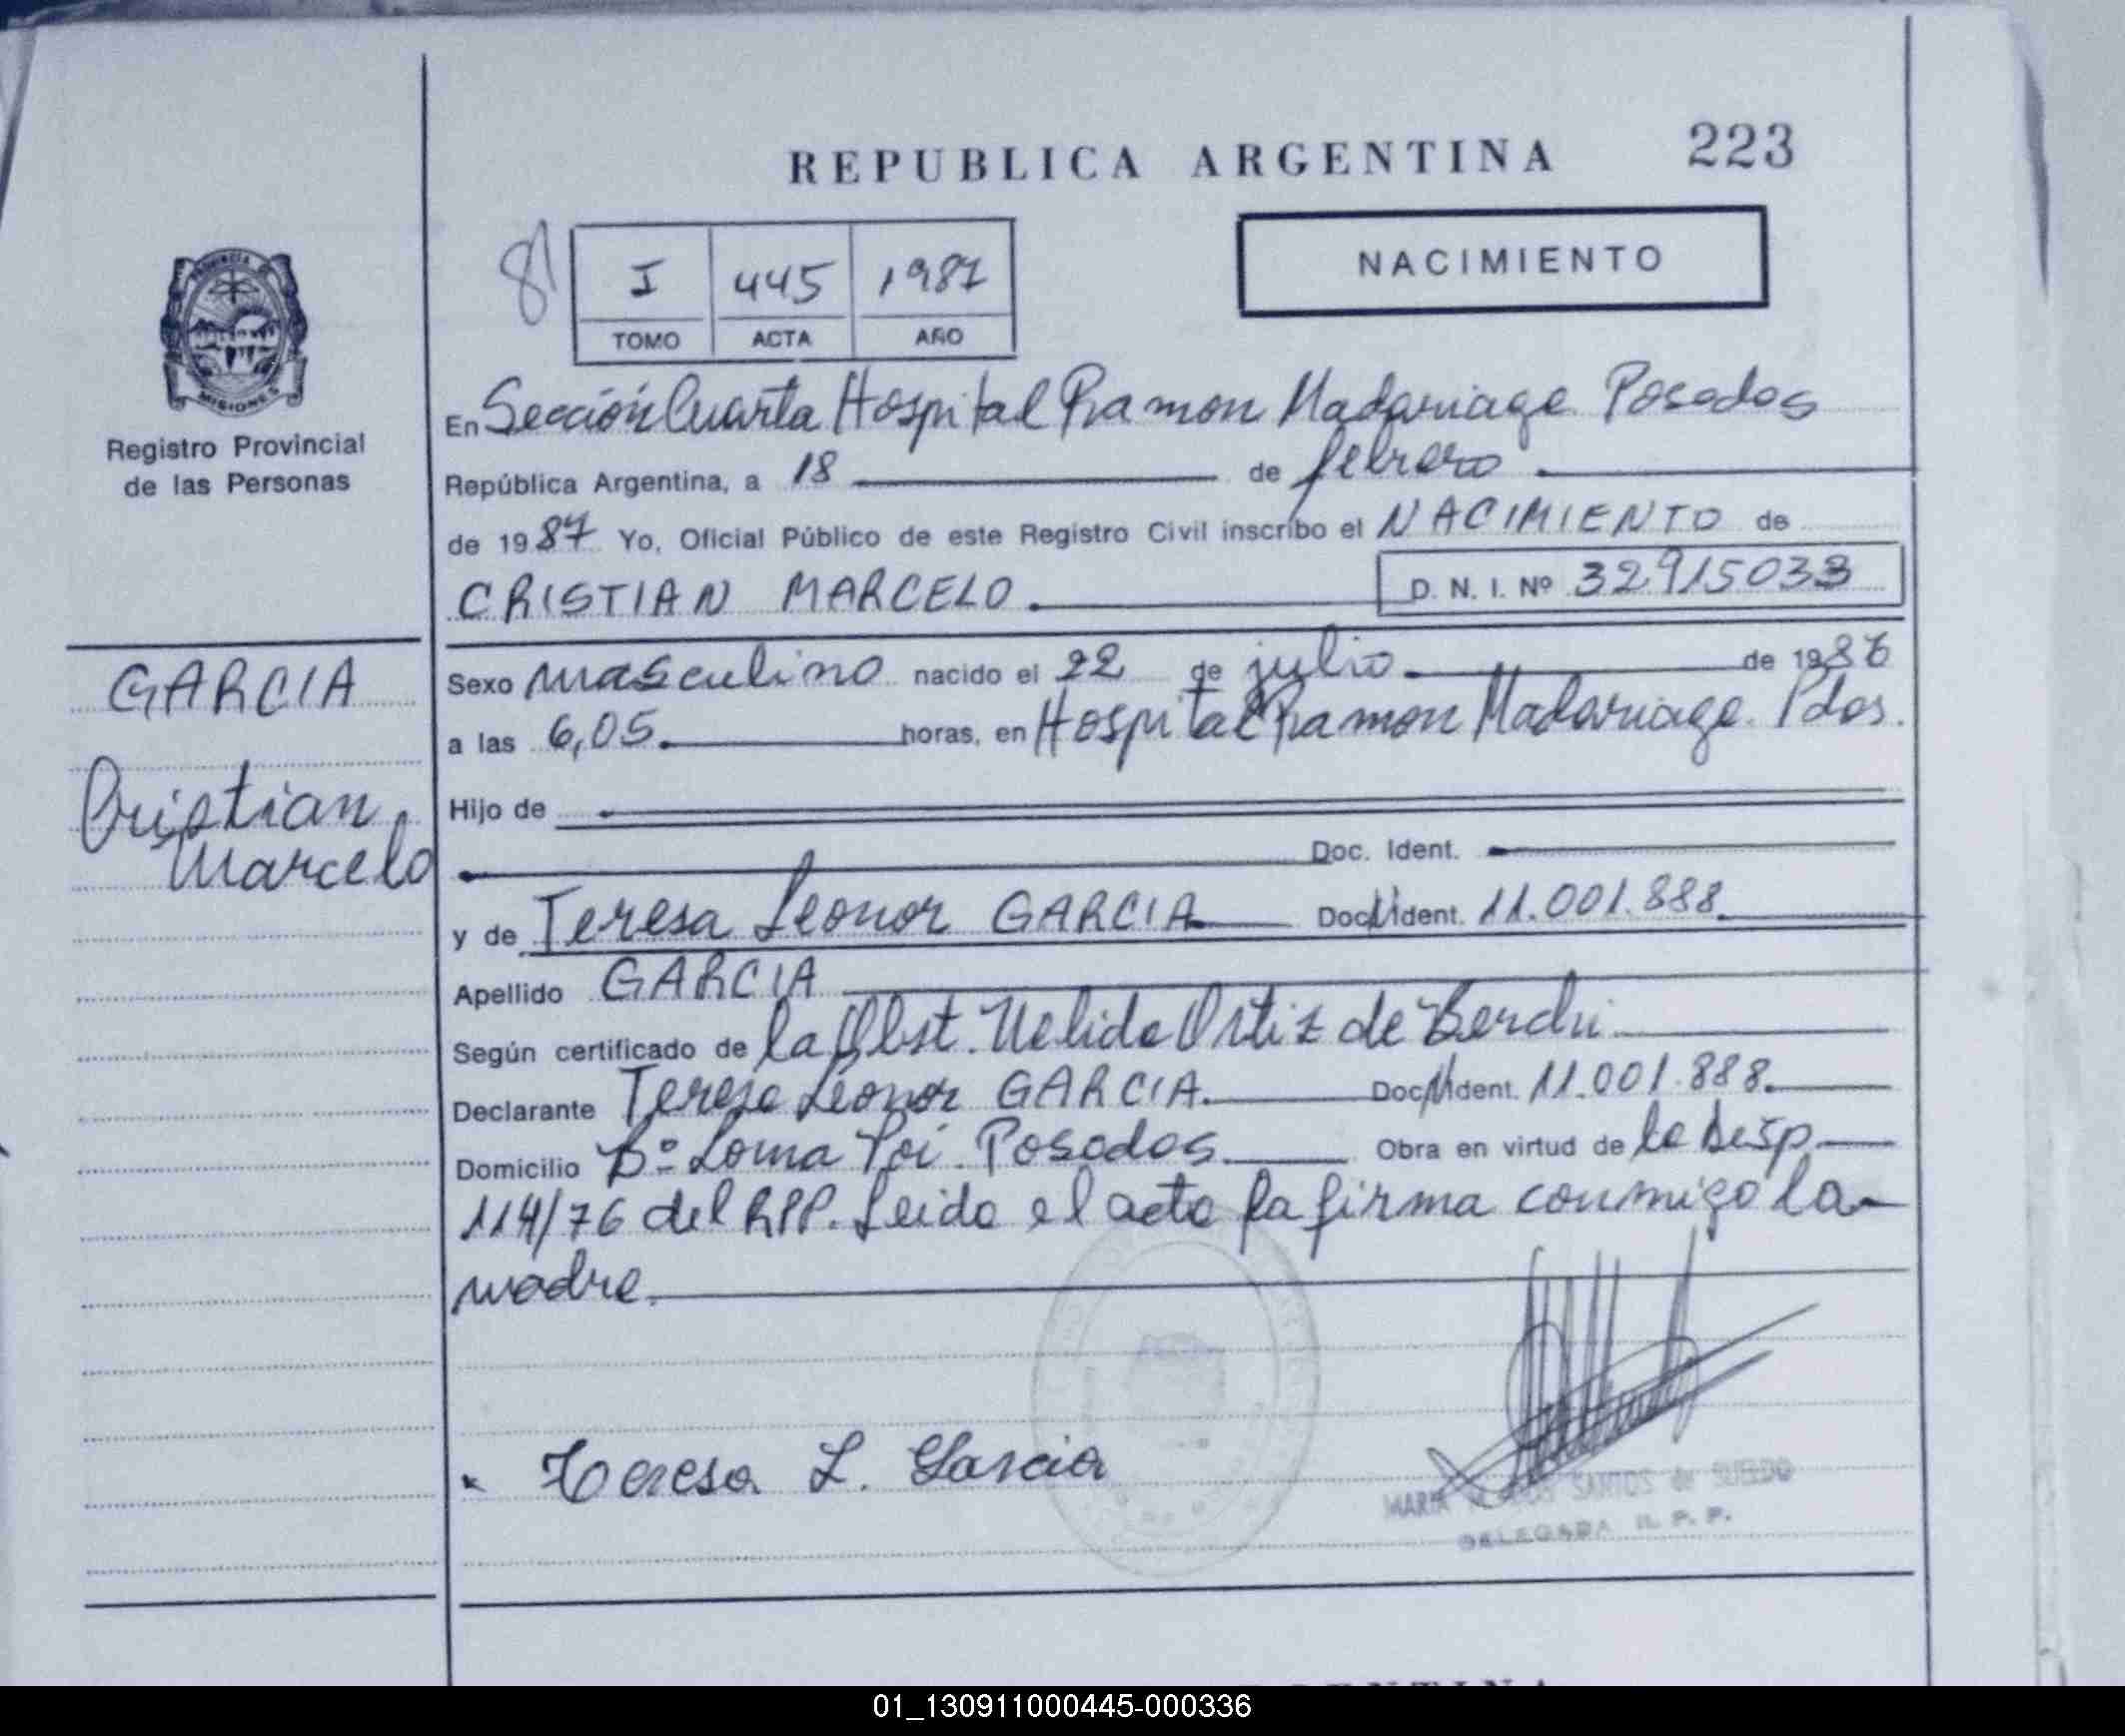 REPUBLICA ARGENTINA 223
8
I 445 1987
TOMO ACTA AÑO
NACIMIENTO
PROVINCIA DE
MISIONES
Registro Provincial
de las Personas
En Sección Cuarta Hospital Ramon Madariaga Posadas
República Argentina, a 18 de febrero
de 1987 Yo, Oficial Público de este Registro Civil inscribo el NACIMIENTO de
CRISTIAN MARCELO. D. N. I. Nº 32915033
GARCIA
Cristian
Marcelo
Sexo masculino nacido el 22 de julio de 1986
a las 6,05. horas, en Hospital Ramon Madariaga. Pdas.
Hijo de
Doc. Ident.
y de Teresa Leonor GARCIA Doc. Ident. 11.001.888
Apellido GARCIA
Según certificado de la Obst. Nelida Ortiz de Berchi
Declarante Teresa Leonor GARCIA. Doc. Ident. 11.001.888.
Domicilio Bº Loma Poi Posadas Obra en virtud de la Desp.
114/76 del RPP. Leida el acta la firma conmigo la
madre.
Teresa L. Garcia
MARIA SANTOS de SUELDO
DELEGADA R. P. P.
01_130911000445-000336